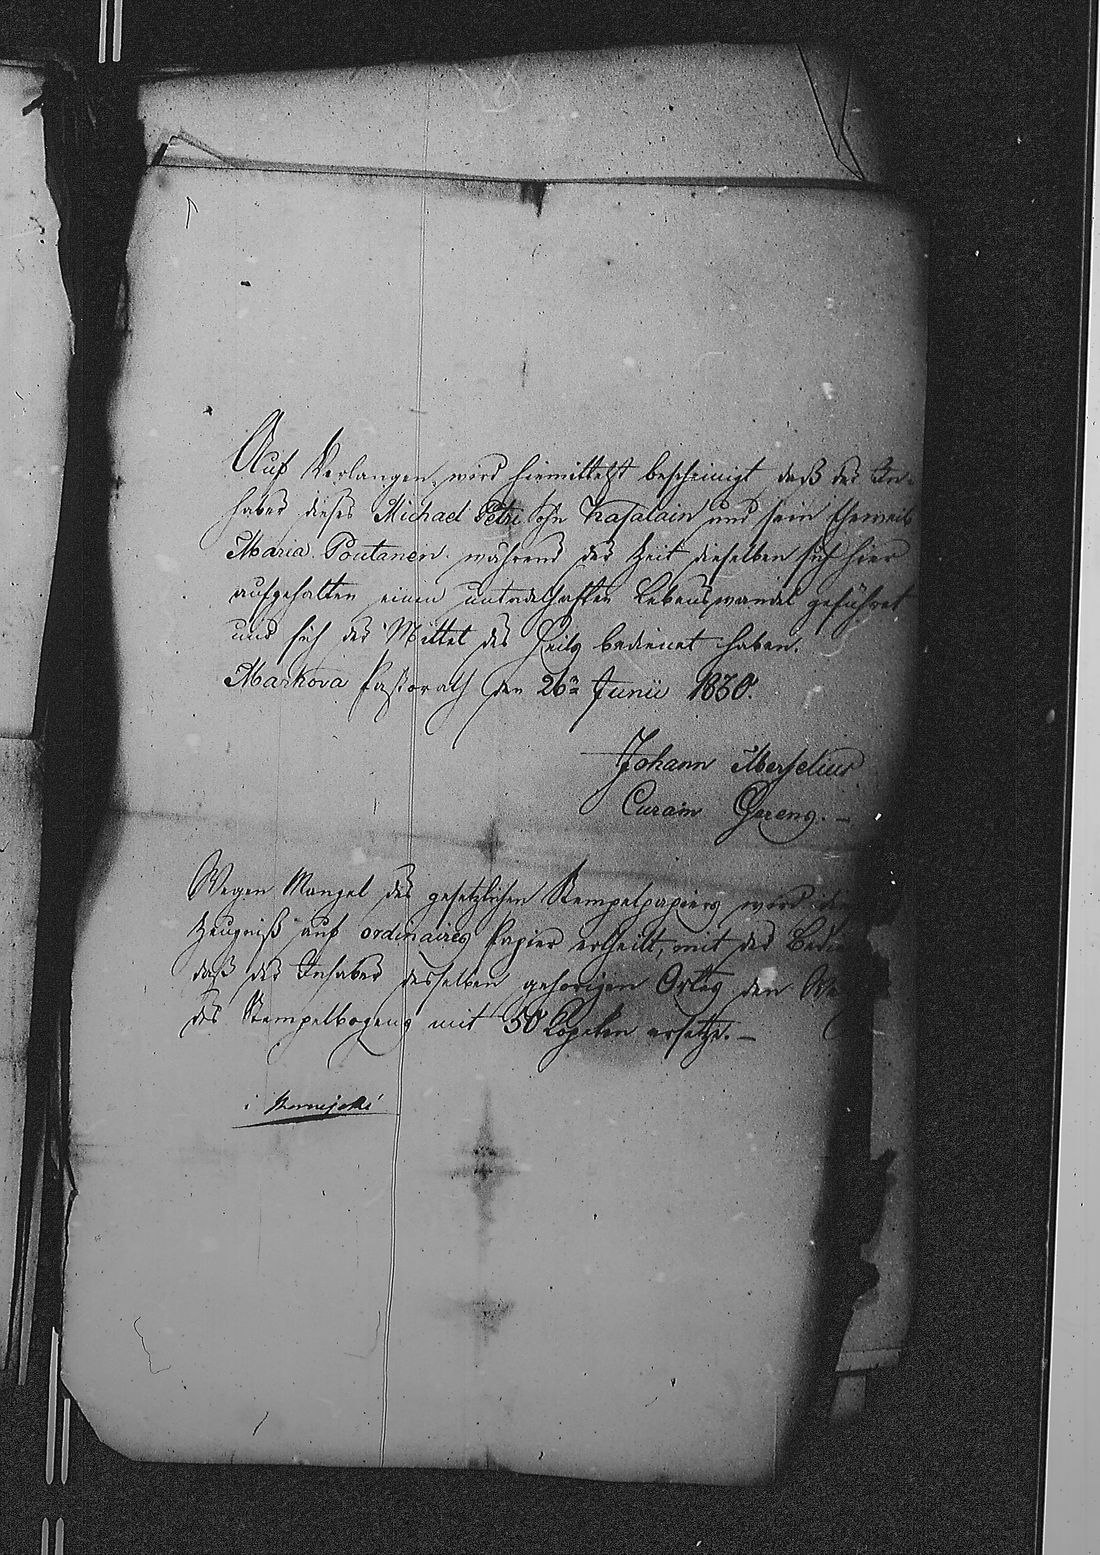 Auf Verlangen wird hiermittelst bescheinigt daß der In-
haber dieses Michael Petri Sohn Kasalain und sein Eheweib
Maria Poutanen während der Zeit dieselben sich hier
aufgehalten einen untadelhaften Lebenswandel geführet
und sich der Mittel des Heils bedienet haben.
Markova Pastorath den 26n Junii 1830.
Johann
Wegen Mangel des gesetzlichen Stempelpapiers wird
Zeugniß auf ordinaires Papier ertheilt, mit der
daß der Inhaber desselben gehörigen Ortes den
des Stempelbogens mit 50 Copeken ersetze. —